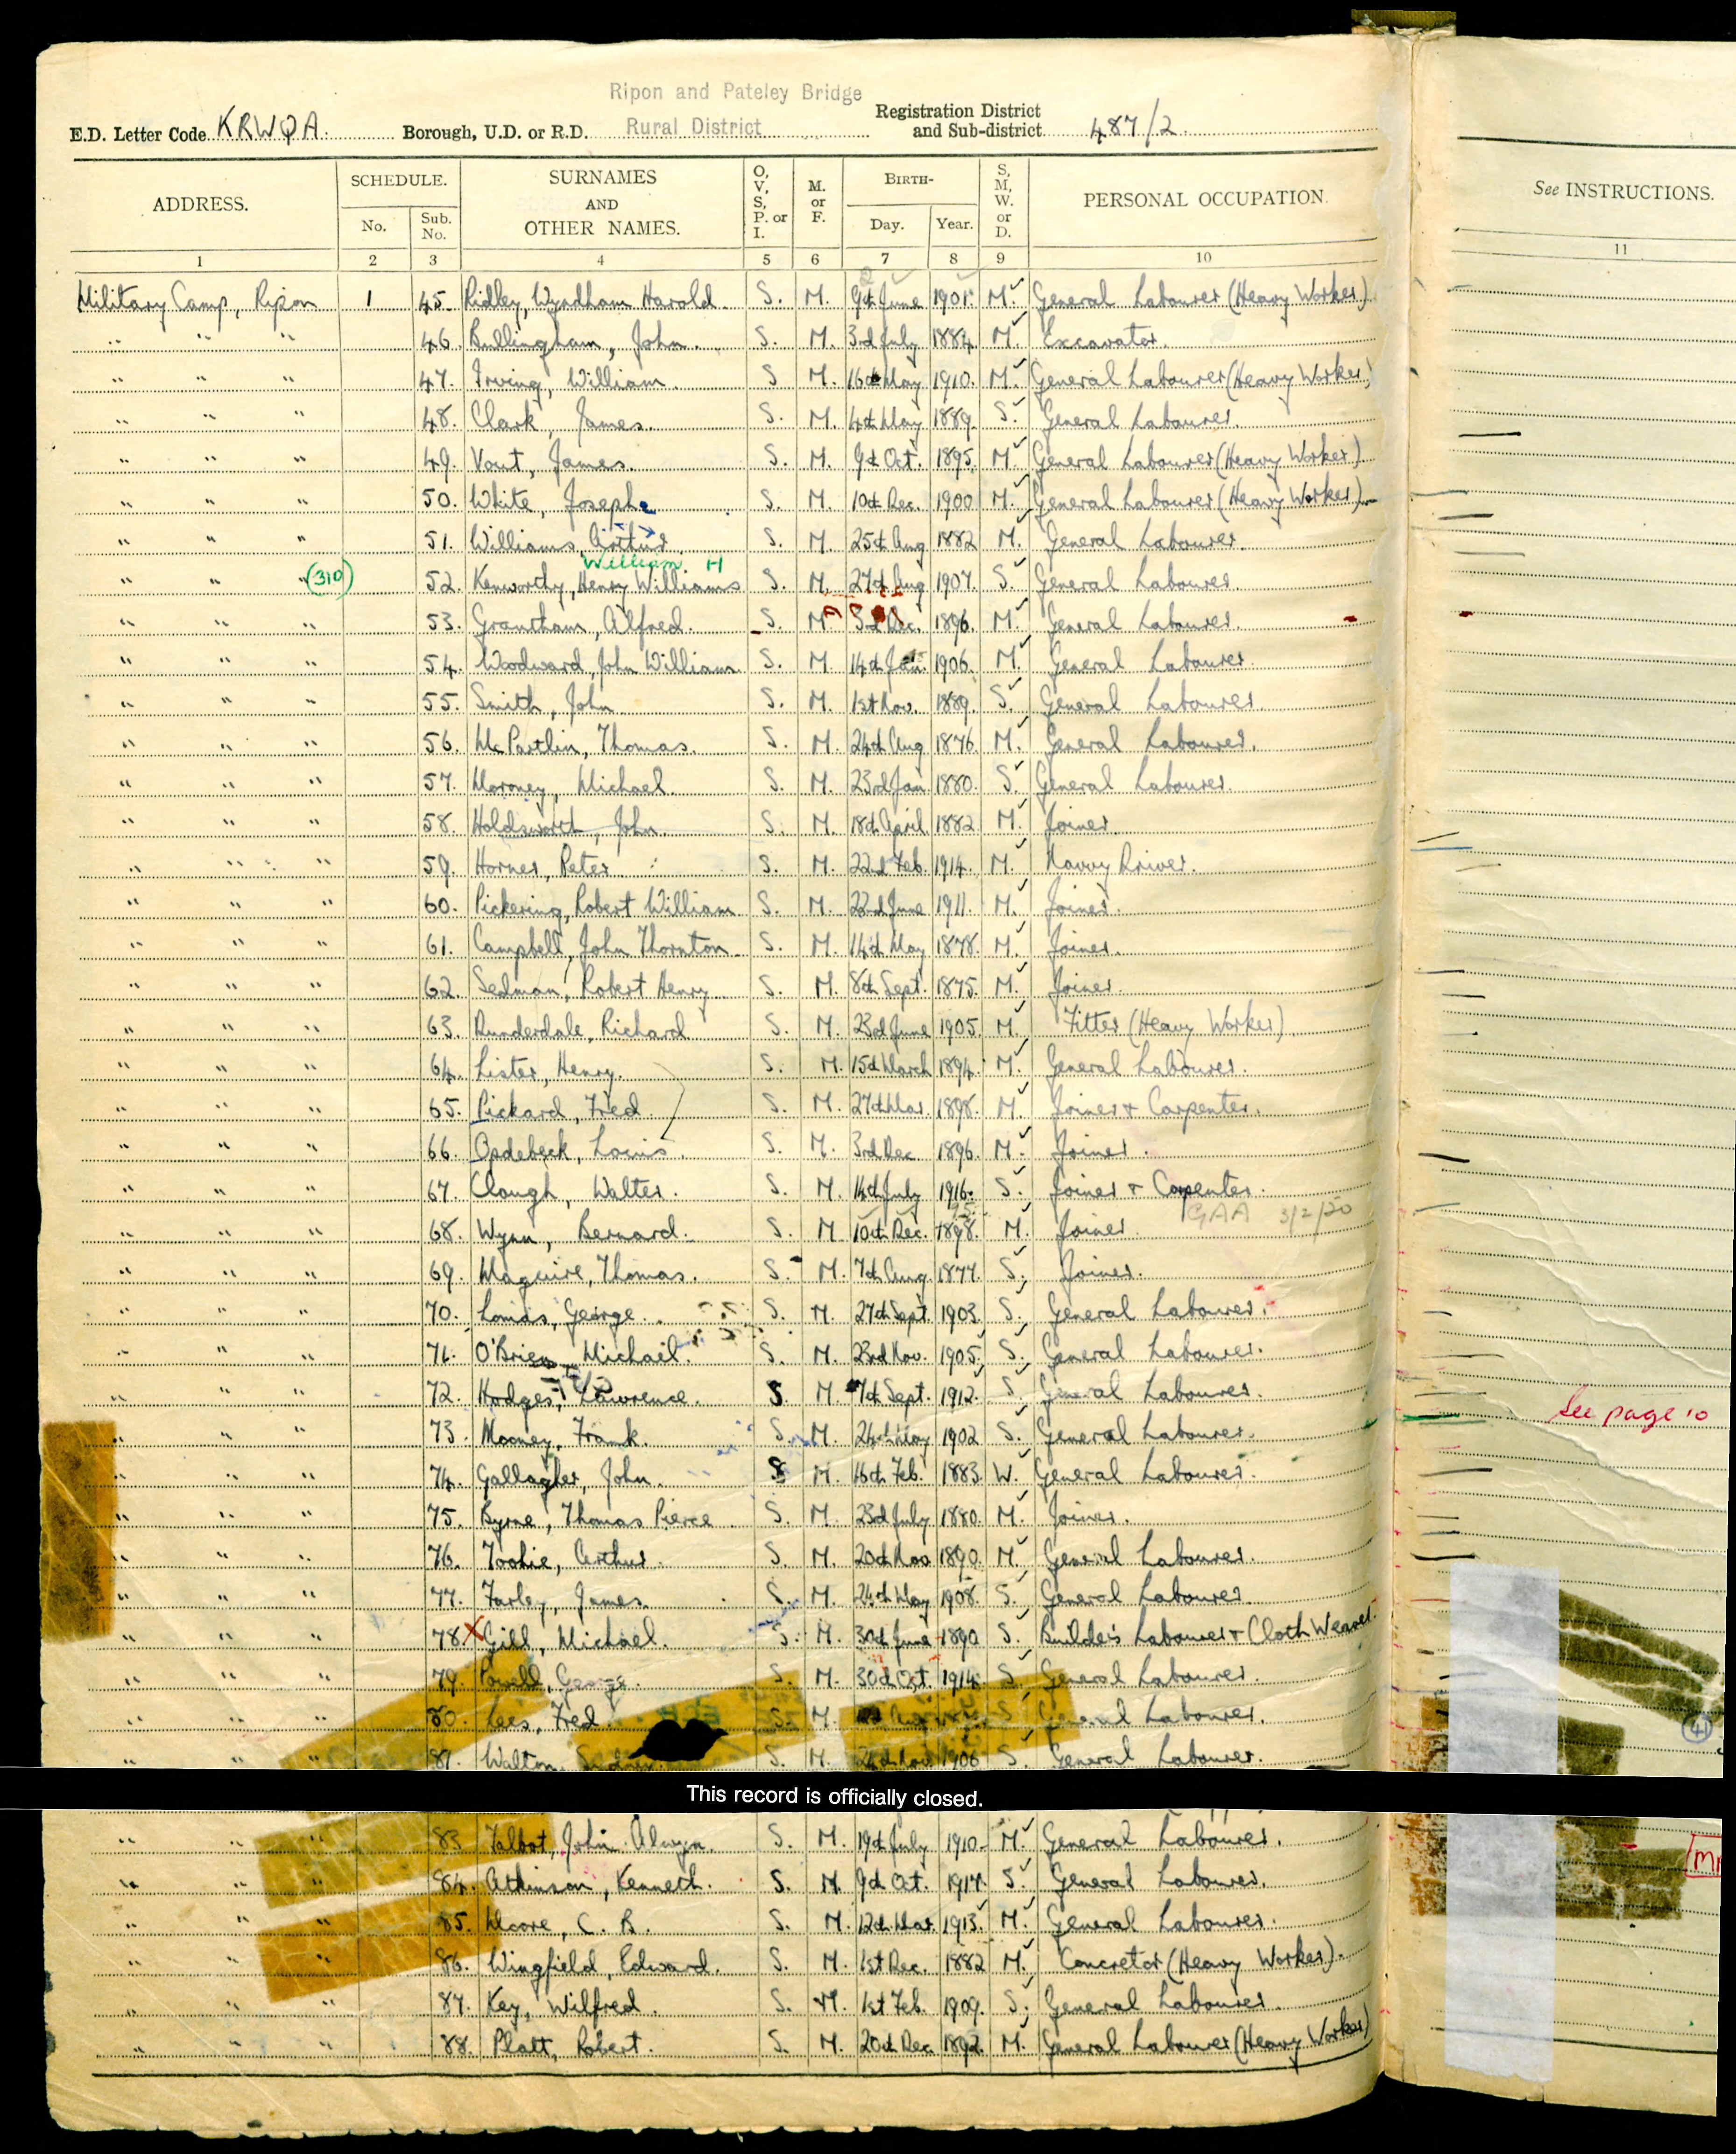 Ripon and Pateley Bridge
E.D. Letter Code KRWQA. Borough, U.D. or R.D. Rural District Registration District and Sub-district 487/2
ADDRESS. SCHEDULE. No. Sub. No. SURNAMES AND OTHER NAMES. O, V, S, P. or I. M. or F. BIRTH- Day. Year. S, M, W. or D. PERSONAL OCCUPATION. See INSTRUCTIONS.
1 2 3 4 5 6 7 8 9 10 11
Military Camp, Ripon 1 45. Ridley, Wyndham Harold S. M. 9th June 1901 M. General Labourer (Heavy Worker)
" " " 46. Bullingham, John. S. M. 3rd July 1884 M. Excavator.
" " " 47. Irving, William. S M. 16th May 1910. M. General Labourer (Heavy Worker)
" " " 48. Clark, James. S. M. 4th May 1889. S. General Labourer.
" " " 49. Vout, James. S. M. 9th Oct. 1895. M. General Labourer (Heavy Worker)
" " " 50. White, Joseph S. M. 10th Dec. 1900 M. General Labourer (Heavy Worker)
" " " 51. Williams, Arthur. S. M. 25th Aug 1882 M. General Labourer.
William H
" " " (310) 52. Kenworthy, Henry Williams S. M. 27th Aug 1907. S. General Labourer.
" " " 53. Grantham, Alfred. S. M. 3rd Dec. 1896. M. General Labourer.
" " " 54. Woodward, John William S. M. 14th Jan 1906. M. General Labourer.
" " " 55. Smith, John S. M. 1st Nov. 1889. S. General Labourer.
" " " 56. McPartlin, Thomas. S. M. 24th Aug 1876. M. General Labourer.
" " " 57. Moroney, Michael. S. M. 23rd Jan 1880. S. General Labourer.
" " " 58. Holdsworth, John. S. M. 18th April 1882 M. Joiner.
" " " 59. Horner, Peter S. M. 22nd Feb. 1914. M. Navvy Driver.
" " " 60. Pickering, Robert William S. M. 22nd June 1911. M. Joiner.
" " " 61. Campbell, John Thornton S. M. 14th May 1878. M. Joiner.
" " " 62. Sedman, Robert Henry S. M. 8th Sept. 1875. M. Joiner.
" " " 63. Dunderdale, Richard S. M. 23rd June 1905. M. Fitter (Heavy Worker)
" " " 64. Lister, Henry. S. M. 15th March 1894. M. General Labourer.
" " " 65. Pickard, Fred S. M. 27th Mar. 1898. M. Joiner & Carpenter.
" " " 66. Opdebeck, Louis. S. M. 3rd Dec 1896. M. Joiner.
" " " 67. Clough, Walter. S. M. 14th July 1916. S. Joiner & Carpenter.
GAA 3/2/50
" " " 68. Wynn, Bernard. S. M 10th Dec. 1898. M. Joiner.
" " " 69. Maguire, Thomas. S. M. 7th Aug 1877. S. Joiner.
" " " 70. Lomas, George. S. M. 27th Sept 1903. S. General Labourer.
" " " 71. O'Brien, Michail. S. M. 23rd Nov. 1905 S. General Labourer.
" " " 72. Hodges, Lawrence. S. M. 7th Sept. 1912. S. General Labourer.
See page 10
" " " 73. Mooney, Frank. S. M. 24th May 1902 S. General Labourer.
" " " 74. Gallagher, John. S M. 16th Feb. 1883. W. General Labourer.
" " " 75. Byrne, Thomas Pierce S. M. 23rd July 1880. M. Joiner.
" " " 76. Toohie, Arthur. S. M. 20th Nov 1890. M. General Labourer.
" " " 77. Farley, James. S. M. 24th May 1908. S. General Labourer.
" " " 78. X Gill, Michael. S. M. 30th June 1890 S. Builder's Labourer & Cloth Weaver.
" " " 79. Powell, George. S. M. 30th Oct. 1914. S. General Labourer.
" " " 80. Lees, Fred. S. M. S General Labourer.
41
" " " 81. Walton, Sydney. S. M. Nov 1906 S. General Labourer.
This record is officially closed.
" " " 83 Talbot, John Alwyn. S. M. 19th July 1910. M. General Labourer.
" " " 84. Atkinson, Kenneth. S. M. 9th Oct. 1917. S. General Labourer.
" " " 85. Moore, C. B. S. M. 12th Mar. 1913. M. General Labourer.
" " " 86. Wingfield, Edward. S. M. 1st Dec. 1882 M. Concretor (Heavy Worker).
" " " 87. Key, Wilfred. S. M. 1st Feb. 1909. S. General Labourer.
" " " 88. Platt, Robert. S. M. 20th Dec 1892. M. General Labourer (Heavy Worker)